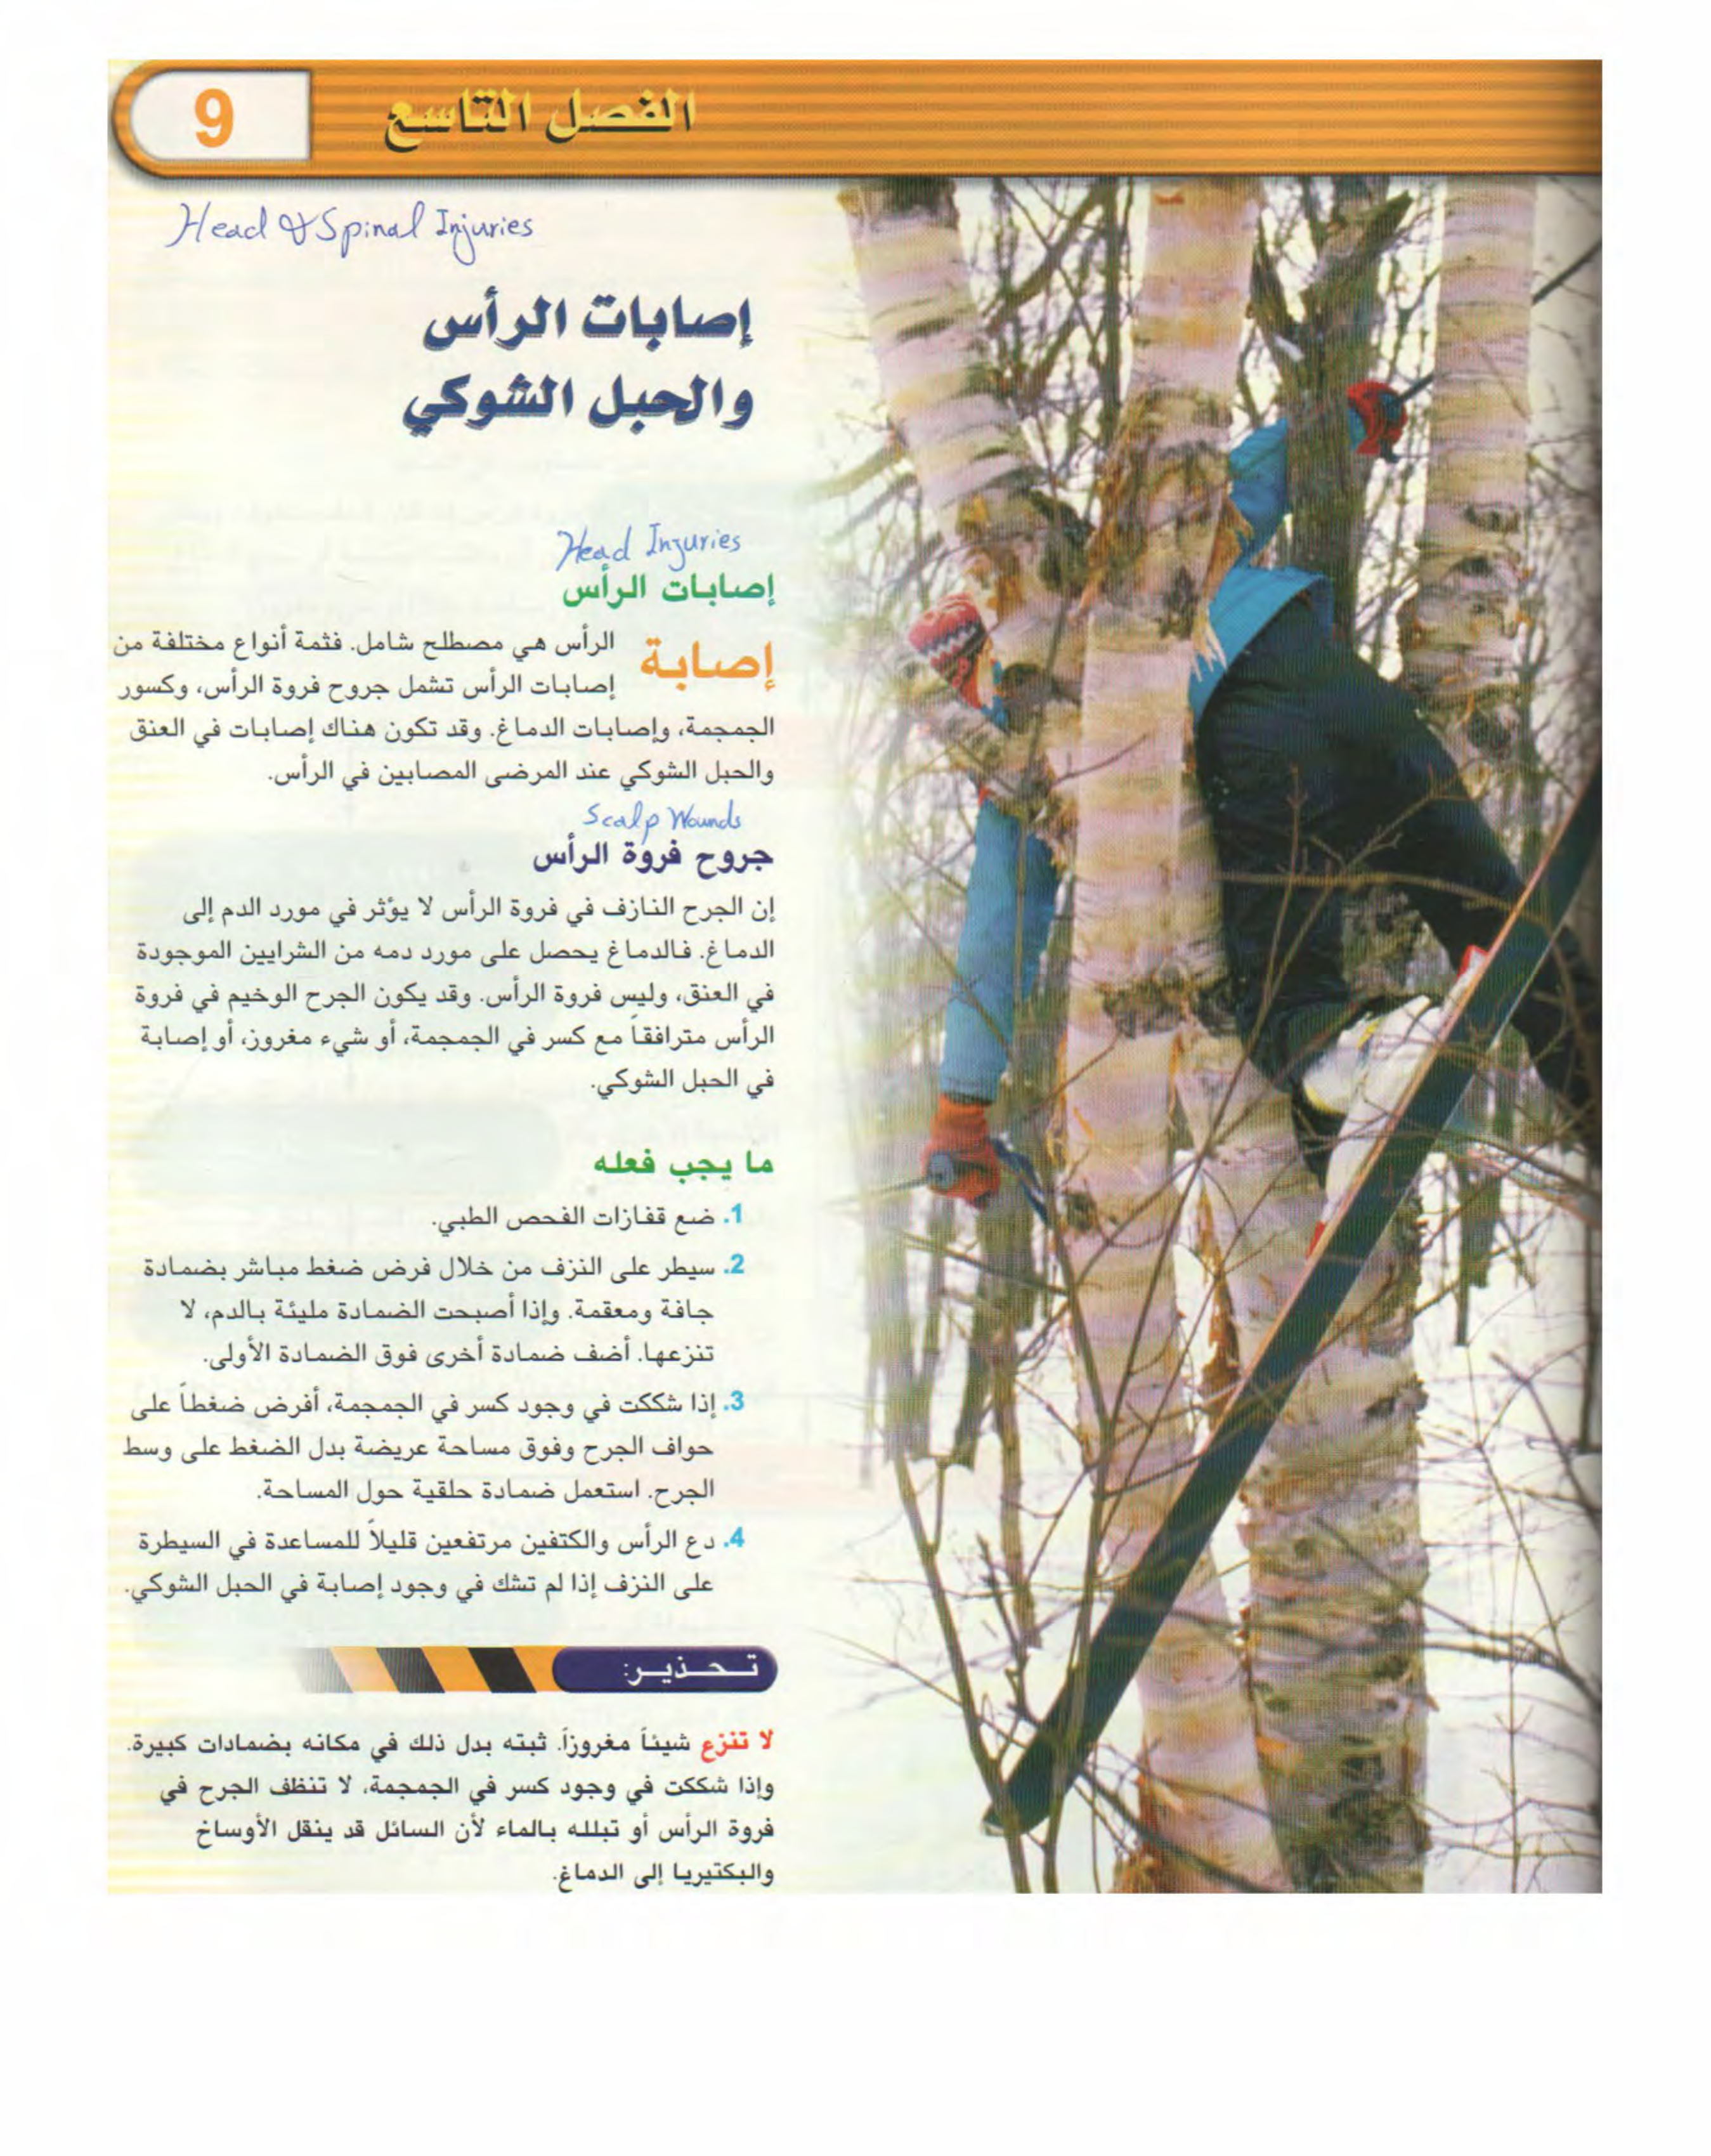 الفصل التاسع
9
Head & Spinal Injuries
إصابات الرأس
والحبل الشوكي
Head Injuries
إصابات الرأس
إصابة الرأس هي مصطلح شامل. فثمة أنواع مختلفة من
إصابات الرأس تشمل جروح فروة الرأس، وكسور
الجمجمة، وإصابات الدماغ. وقد تكون هناك إصابات في العنق
والحبل الشوكي عند المرضى المصابين في الرأس.
Scalp Wounds
جروح فروة الرأس
إن الجرح النازف في فروة الرأس لا يؤثر في مورد الدم إلى
الدماغ. فالدماغ يحصل على مورد دمه من الشرايين الموجودة
في العنق، وليس فروة الرأس. وقد يكون الجرح الوخيم في فروة
الرأس مترافقاً مع كسر في الجمجمة، أو شيء مغروز، أو إصابة
في الحبل الشوكي.
ما يجب فعله
1. ضع قفازات الفحص الطبي.
2. سيطر على النزف من خلال فرض ضغط مباشر بضمادة
جافة ومعقمة. وإذا أصبحت الضمادة مليئة بالدم، لا
تنزعها. أضف ضمادة أخرى فوق الضمادة الأولى.
3. إذا شككت في وجود كسر في الجمجمة، أفرض ضغطاً على
حواف الجرح وفوق مساحة عريضة بدل الضغط على وسط
الجرح. استعمل ضمادة حلقية حول المساحة.
4. دع الرأس والكتفين مرتفعين قليلاً للمساعدة في السيطرة
على النزف إذا لم تشك في وجود إصابة في الحبل الشوكي.
تحذير:
لا تنزع شيئاً مغروزاً. ثبته بدل ذلك في مكانه بضمادات كبيرة.
وإذا شككت في وجود كسر في الجمجمة، لا تنظف الجرح في
فروة الرأس أو تبلله بالماء لأن السائل قد ينقل الأوساخ
والبكتيريا إلى الدماغ.